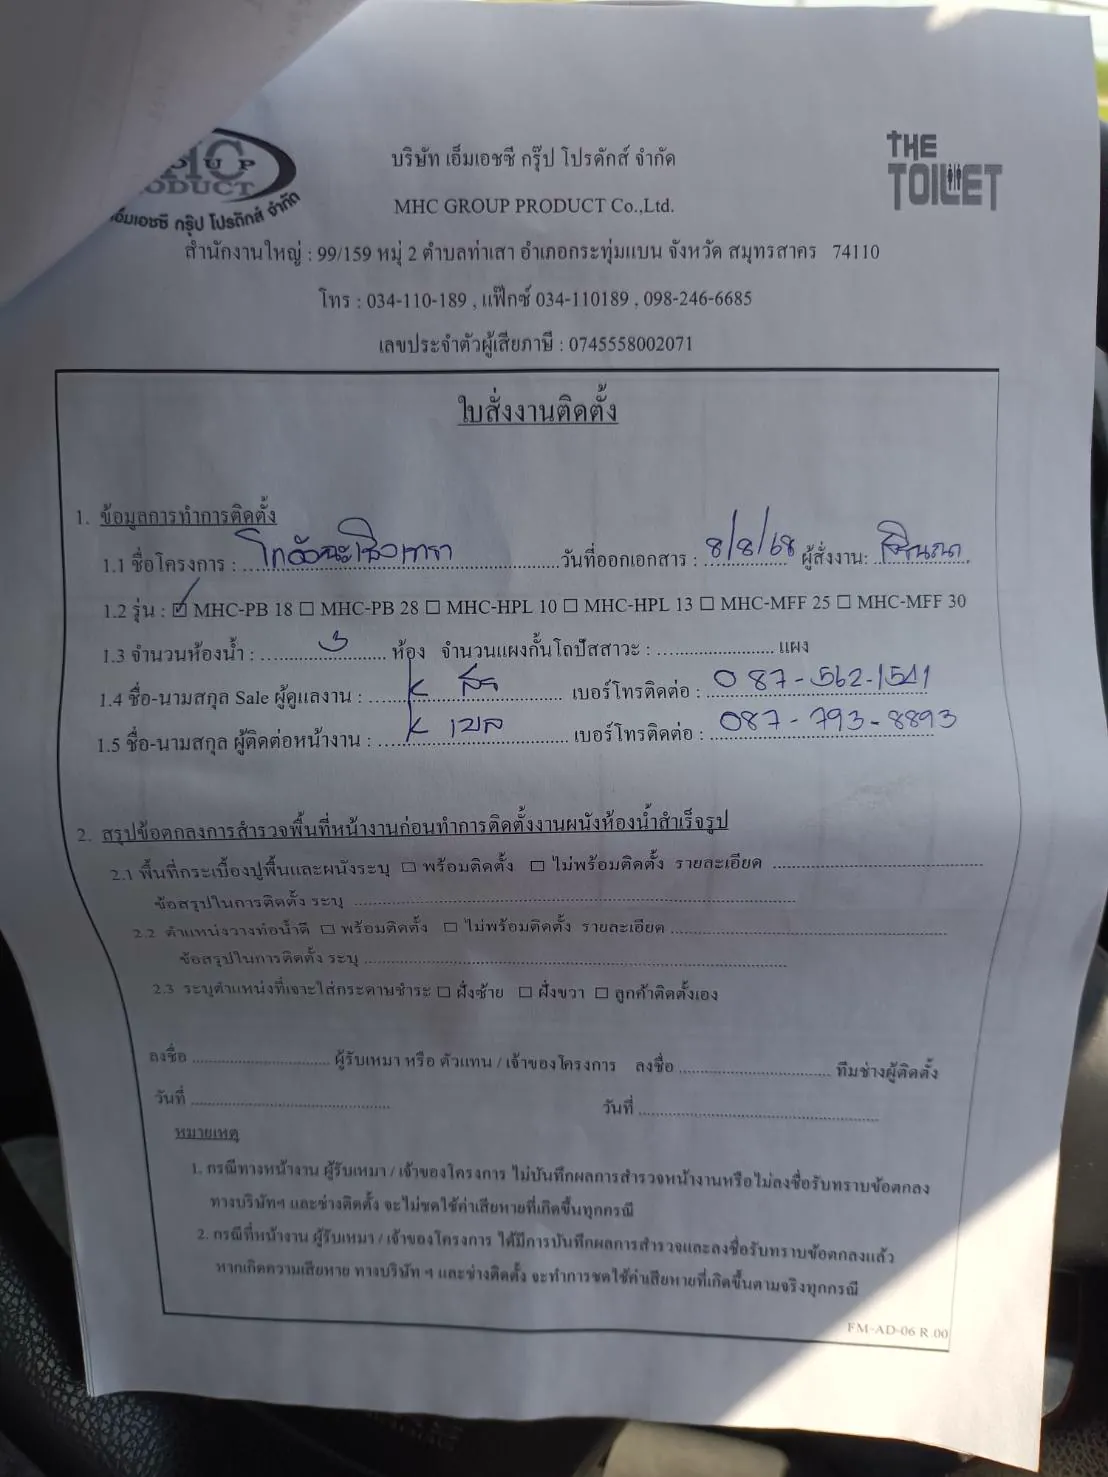 HC
OUP
ODUCT
เอ็มเอชซี กรุ๊ป โปรดักส์ จำกัด
THE
TOILET
บริษัท เอ็มเอชซี กรุ๊ป โปรดักส์ จำกัด
MHC GROUP PRODUCT Co.,Ltd.
สำนักงานใหญ่ : 99/159 หมู่ 2 ตำบลท่าเสา อำเภอกระทุ่มแบน จังหวัด สมุทรสาคร 74110
โทร : 034-110-189 , แฟ๊กซ์ 034-110189 , 098-246-6685
เลขประจำตัวผู้เสียภาษี : 0745558002071
ใบสั่งงานติดตั้ง
1. ข้อมูลการทำการติดตั้ง
1.1 ชื่อโครงการ : โกดังฉะเชิงเทรา วันที่ออกเอกสาร : 8/8/68 ผู้สั่งงาน:
1.2 รุ่น : ☑ MHC-PB 18 ☐ MHC-PB 28 ☐ MHC-HPL 10 ☐ MHC-HPL 13 ☐ MHC-MFF 25 ☐ MHC-MFF 30
1.3 จำนวนห้องน้ำ : 3 ห้อง จำนวนแผงกั้นโถปัสสาวะ : .......... แผง
1.4 ชื่อ-นามสกุล Sale ผู้ดูแลงาน : K เบอร์โทรติดต่อ : 087-562-1541
1.5 ชื่อ-นามสกุล ผู้ติดต่อหน้างาน : K เบอร์โทรติดต่อ : 087-793-8893
2. สรุปข้อตกลงการสำรวจพื้นที่หน้างานก่อนทำการติดตั้งงานผนังห้องน้ำสำเร็จรูป
2.1 พื้นที่กระเบื้องปูพื้นและผนังระบุ ☐ พร้อมติดตั้ง ☐ ไม่พร้อมติดตั้ง รายละเอียด ..........
ข้อสรุปในการติดตั้ง ระบุ ..........
2.2 ตำแหน่งวางท่อน้ำดี ☐ พร้อมติดตั้ง ☐ ไม่พร้อมติดตั้ง รายละเอียด ..........
ข้อสรุปในการติดตั้ง ระบุ ..........
2.3 ระบุตำแหน่งที่เจาะใส่กระดาษชำระ ☐ ฝั่งซ้าย ☐ ฝั่งขวา ☐ ลูกค้าติดตั้งเอง
ลงชื่อ .......... ผู้รับเหมา หรือ ตัวแทน / เจ้าของโครงการ ลงชื่อ .......... ทีมช่างผู้ติดตั้ง
วันที่ .......... วันที่ ..........
หมายเหตุ
1. กรณีทางหน้างาน ผู้รับเหมา / เจ้าของโครงการ ไม่บันทึกผลการสำรวจหน้างานหรือไม่ลงชื่อรับทราบข้อตกลง
ทางบริษัทฯ และช่างติดตั้ง จะไม่ชดใช้ค่าเสียหายที่เกิดขึ้นทุกกรณี
2. กรณีที่หน้างาน ผู้รับเหมา / เจ้าของโครงการ ได้มีการบันทึกผลการสำรวจและลงชื่อรับทราบข้อตกลงแล้ว
หากเกิดความเสียหาย ทางบริษัท ฯ และช่างติดตั้ง จะทำการชดใช้ค่าเสียหายที่เกิดขึ้นตามจริงทุกกรณี
FM-AD-06 R.00